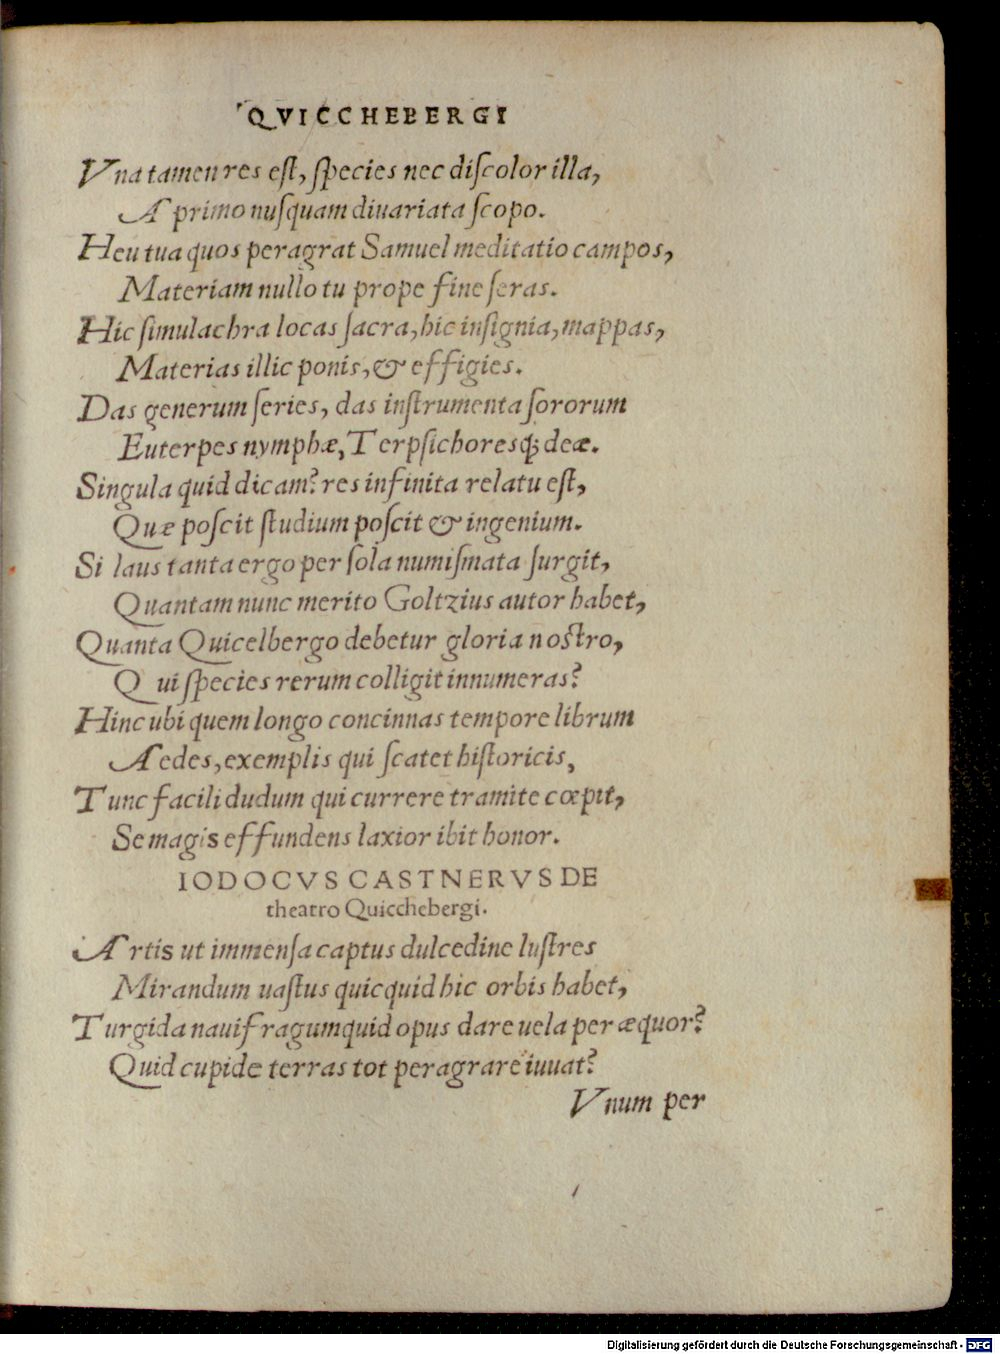 QVICCHEBERGI
Vna tamen res eſt, ſpecies nec diſcolor illa,
A primo nuſquam diuariata ſcopo.
Heu tua quos peragrat Samuel meditatio campos,
Materiam nullo tu prope fine ſeras.
Hic ſimulachra locas ſacra, hic inſignia, mappas,
Materias illic ponis, & effigies.
Das generum ſeries, das inſtrumenta ſororum
Euterpes nymphæ, Terpſichoresq; deæ.
Singula quid dicam? res infinita relatu eſt,
Quæ poſcit ſtudium poſcit & ingenium.
Si laus tanta ergo per ſola numiſmata ſurgit,
Quantam nunc merito Goltzius autor habet,
Quanta Quicelbergo debetur gloria noſtro,
Qui ſpecies rerum colligit innumeras?
Hinc ubi quem longo concinnas tempore librum
Aedes, exemplis qui ſcatet hiſtoricis,
Tunc facili dudum qui currere tramite cœpit,
Se magis effundens laxior ibit honor.
IODOCVS CASTNERVS DE
theatro Quicchebergi.
Artis ut immenſa captus dulcedine luſtres
Mirandum uaſtus quicquid hic orbis habet,
Turgida nauifragum quid opus dare uela per æquor?
Quid cupide terras tot peragrare iuuat?
Vnum per
Digitalisierung gefördert durch die Deutsche Forschungsgemeinschaft - DFG